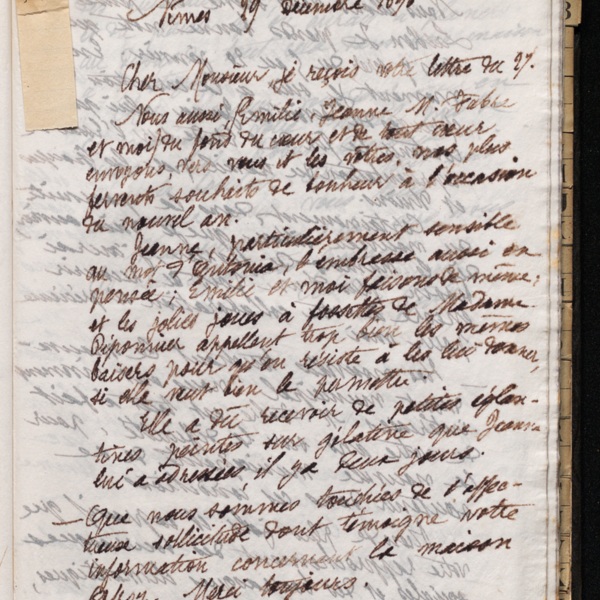 Nîmes 29 Décembre 1898
Cher Monsieur je reçois votre lettre du 27.
Nous aussi, Emilie, Jeanne M. Fabre
et moi, du fond du cœur et de tout cœur
envoyons, vers vous et les vôtres, nos plus
fervents souhaits de bonheur à l'occasion
du nouvel an.
Jeanne, particulièrement sensible
au mot d'Antonia, l'embrasse aussi en
pensée ; Emilie et moi faisons de même ;
et les jolies joues à fossettes de Madame
Diponnier appellent trop bien les mêmes
baisers pour qu'on résiste à les lui donner,
si elle veut bien le permettre.
Elle a dû recevoir de petites églan-
tines peintes sur gélatine que Jeanne
lui a adressées, il y a deux jours.
— Que nous sommes touchées de l'affec-
tueuse sollicitude dont témoigne votre
information concernant la maison
Merci toujours.